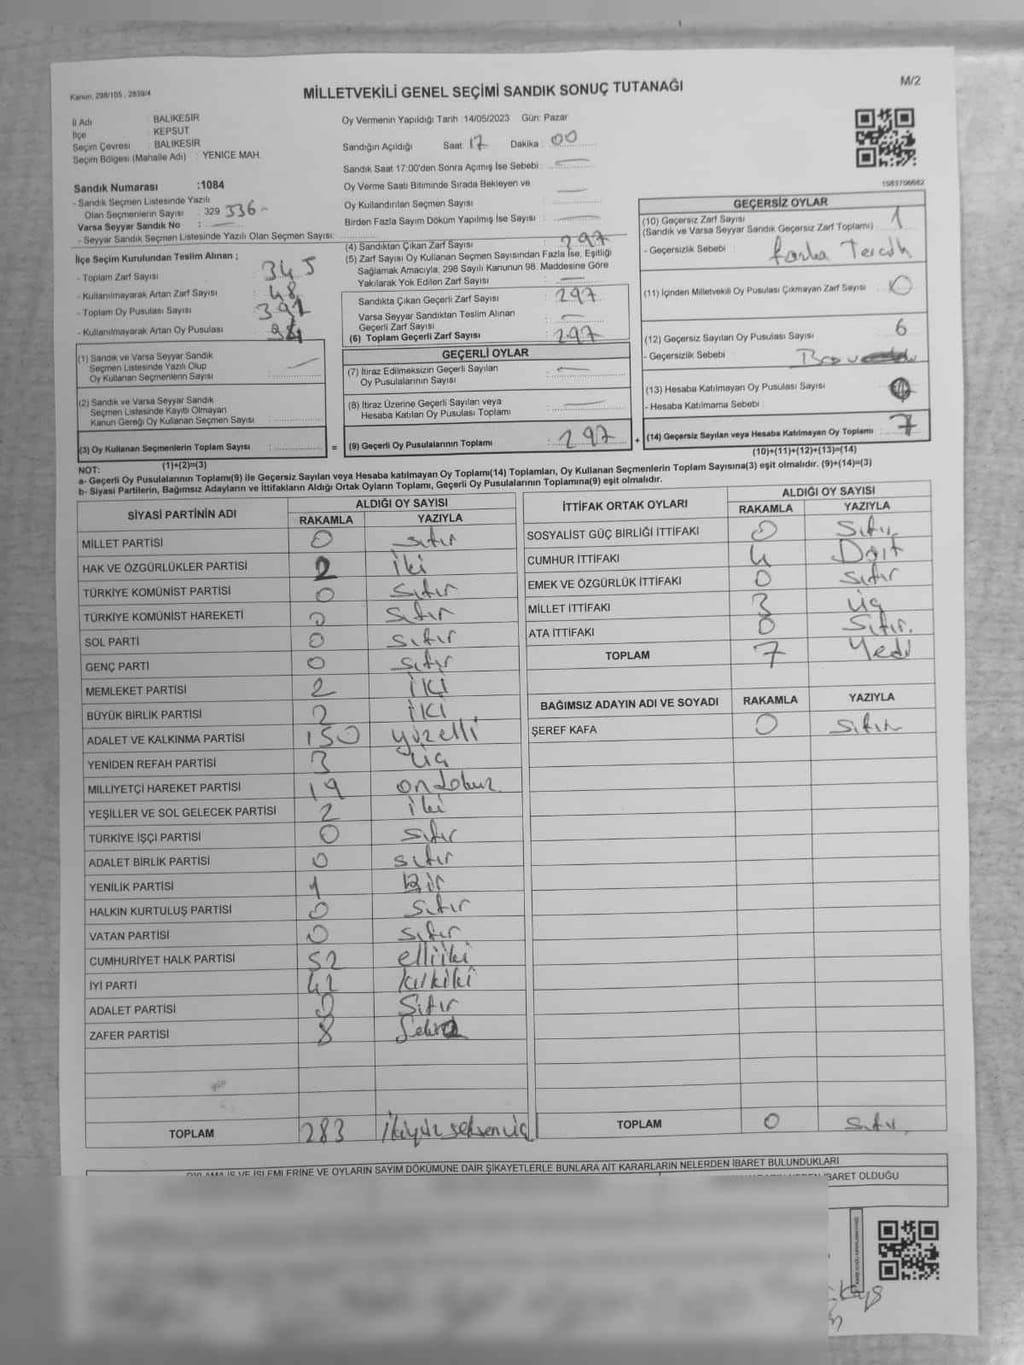 Kanun, 298/105, 2839/4
MİLLETVEKİLİ GENEL SEÇİMİ SANDIK SONUÇ TUTANAĞI
M/2
İl Adı BALIKESİR
İlçe KEPSUT
Seçim Çevresi : BALIKESİR
Seçim Bölgesi (Mahalle Adı) : YENICE MAH.
Oy Vermenin Yapıldığı Tarih :14/05/2023 Gün: Pazar
Sandığın Açıldığı Saat 17 Dakika : 00
Sandık Saat 17:00'den Sonra Açımış İse Sebebi :
Oy Verme Saati Bitiminde Sırada Bekleyen ve
Oy Kullandırılan Seçmen Sayısı :
Birden Fazla Sayım Döküm Yapılmış İse Sayısı :
Sandık Numarası :1084
- Sandık Seçmen Listesinde Yazılı
Olan Seçmenlerin Sayısı : 329 336 -
Varsa Seyyar Sandık No :
- Seyyar Sandık Seçmen Listesinde Yazılı Olan Seçmen Sayısı:
İlçe Seçim Kurulundan Teslim Alınan ;
- Toplam Zarf Sayısı : 345
- Kullanılmayarak Artan Zarf Sayısı : 48
- Toplam Oy Pusulası Sayısı :
- Kullanılmayarak Artan Oy Pusulası :
(1) Sandık ve Varsa Seyyar Sandık
Seçmen Listesinde Yazılı Olup
Oy Kullanan Seçmenlerin Sayısı :
(2) Sandık ve Varsa Seyyar Sandık
Seçmen Listesinde Kayıtlı Olmayan
Kanun Gereği Oy Kullanan Seçmen Sayısı :
(3) Oy Kullanan Seçmenlerin Toplam Sayısı :
(1)+(2)=(3)
(4) Sandıktan Çıkan Zarf Sayısı : 297
(5) Zarf Sayısı Oy Kullanan Seçmen Sayısından Fazla İse, Eşitliği
Sağlamak Amacıyla, 298 Sayılı Kanunun 98. Maddesine Göre
Yakılarak Yok Edilen Zarf Sayısı :
Sandıkta Çıkan Geçerli Zarf Sayısı : 297
Varsa Seyyar Sandıktan Teslim Alınan
Geçerli Zarf Sayısı :
(6) Toplam Geçerli Zarf Sayısı : 297
GEÇERLİ OYLAR
(7) İtiraz Edilmeksizin Geçerli Sayılan
Oy Pusulalarının Sayısı :
(8) İtiraz Üzerine Geçerli Sayılan veya
Hesaba Katılan Oy Pusulası Toplamı :
= (9) Geçerli Oy Pusulalarının Toplamı : 297
1983706682
GEÇERSİZ OYLAR
(10) Geçersiz Zarf Sayısı
(Sandık ve Varsa Seyyar Sandık Geçersiz Zarf Toplamı) : 1
- Geçersizlik Sebebi :
(11) İçinden Milletvekili Oy Pusulası Çıkmayan Zarf Sayısı : 0
(12) Geçersiz Sayılan Oy Pusulası Sayısı : 6
- Geçersizlik Sebebi :
(13) Hesaba Katılmayan Oy Pusulası Sayısı :
- Hesaba Katılmama Sebebi :
+ (14) Geçersiz Sayılan veya Hesaba Katılmayan Oy Toplamı : 7
(10)+(11)+(12)+(13)=(14)
NOT:
a- Geçerli Oy Pusulalarının Toplamı(9) ile Geçersiz Sayılan veya Hesaba katılmayan Oy Toplamı(14) Toplamları, Oy Kullanan Seçmenlerin Toplam Sayısına(3) eşit olmalıdır. (9)+(14)=(3)
b- Siyasi Partilerin, Bağımsız Adayların ve İttifakların Aldığı Ortak Oyların Toplamı, Geçerli Oy Pusulalarının Toplamına(9) eşit olmalıdır.
SİYASİ PARTİNİN ADI ALDIĞI OY SAYISI
RAKAMLA YAZIYLA
MİLLET PARTİSİ 0 sıfır
HAK VE ÖZGÜRLÜKLER PARTİSİ 2 iki
TÜRKİYE KOMÜNİST PARTİSİ 0 sıfır
TÜRKİYE KOMÜNİST HAREKETİ 0 sıfır
SOL PARTİ 0 sıfır
GENÇ PARTİ 0 sıfır
MEMLEKET PARTİSİ 2 İKİ
BÜYÜK BİRLİK PARTİSİ 2 İKİ
ADALET VE KALKINMA PARTİSİ 150 yüzelli
YENİDEN REFAH PARTİSİ 3 üç
MİLLİYETÇİ HAREKET PARTİSİ 19 ondokuz
YEŞİLLER VE SOL GELECEK PARTİSİ 2 iki
TÜRKİYE İŞÇİ PARTİSİ 0 sıfır
ADALET BİRLİK PARTİSİ 0 sıfır
YENİLİK PARTİSİ 1 Bir
HALKIN KURTULUŞ PARTİSİ 0 sıfır
VATAN PARTİSİ 0 sıfır
CUMHURİYET HALK PARTİSİ 52 elliiki
İYİ PARTİ 42 kırkiki
ADALET PARTİSİ 0 Sıfır
ZAFER PARTİSİ 8
TOPLAM 283 ikiyüz seksen üç
İTTİFAK ORTAK OYLARI ALDIĞI OY SAYISI
RAKAMLA YAZIYLA
SOSYALİST GÜÇ BİRLİĞİ İTTİFAKI 0 Sıfır
CUMHUR İTTİFAKI 4 Dört
EMEK VE ÖZGÜRLÜK İTTİFAKI 0 sıfır
MİLLET İTTİFAKI 3 üç
ATA İTTİFAKI 0 Sıfır.
TOPLAM 7 Yedi
BAĞIMSIZ ADAYIN ADI VE SOYADI RAKAMLA YAZIYLA
ŞEREF KAFA 0 sıfır
TOPLAM 0 sıfır
OYLAMA İŞ VE İŞLEMLERİNE VE OYLARIN SAYIM DÖKÜMÜNE DAİR ŞİKAYETLERLE BUNLARA AİT KARARLARIN NELERDEN İBARET BULUNDUKLARI
İBARET OLDUĞU